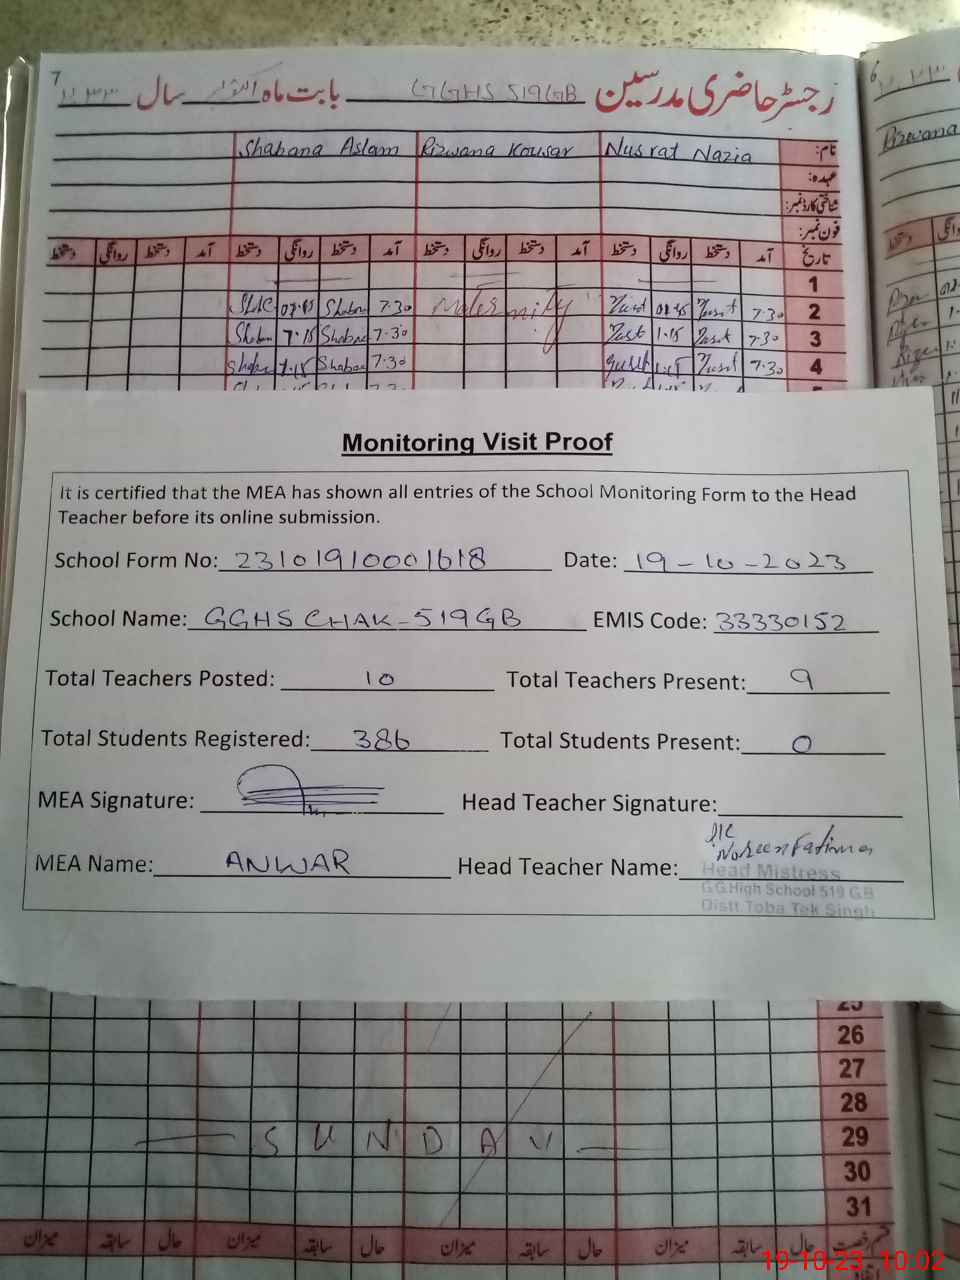 7
رجسٹر حاضری مدرسین GGHS 519GB بابت ماہ اکتوبر سال
نام: Nusrat Nazia Rizwana Kousar Shabana Aslam
عہدہ:
شناختی کارڈ نمبر:
فون نمبر:
تاریخ آمد دستخط روانگی دستخط آمد دستخط روانگی دستخط آمد دستخط روانگی دستخط آمد دستخط روانگی دستخط
1
2 7.30 Maternity 7.30 Shabna
3 7.30 1.15 7.30 7.15
4 7.30 7.30 Shabae
Monitoring Visit Proof
It is certified that the MEA has shown all entries of the School Monitoring Form to the Head
Teacher before its online submission.
School Form No: 23101910001618 Date: 19-10-2023
School Name: GGHS CHAK-519GB EMIS Code: 33330152
Total Teachers Posted: 10 Total Teachers Present: 9
Total Students Registered: 386 Total Students Present: 0
MEA Signature: Head Teacher Signature:
MEA Name: ANWAR Head Teacher Name: Noreen Fatima
Head Mistress
G.G.High School 519 GB
Distt.Toba Tek Singh
25
26
27
28
29 SUNDAY
30
31
قسم رخصت حال سابقہ میزان حال سابقہ میزان حال سابقہ میزان حال سابقہ میزان
6
Rizwana
دستخط
19-10-23 10:02